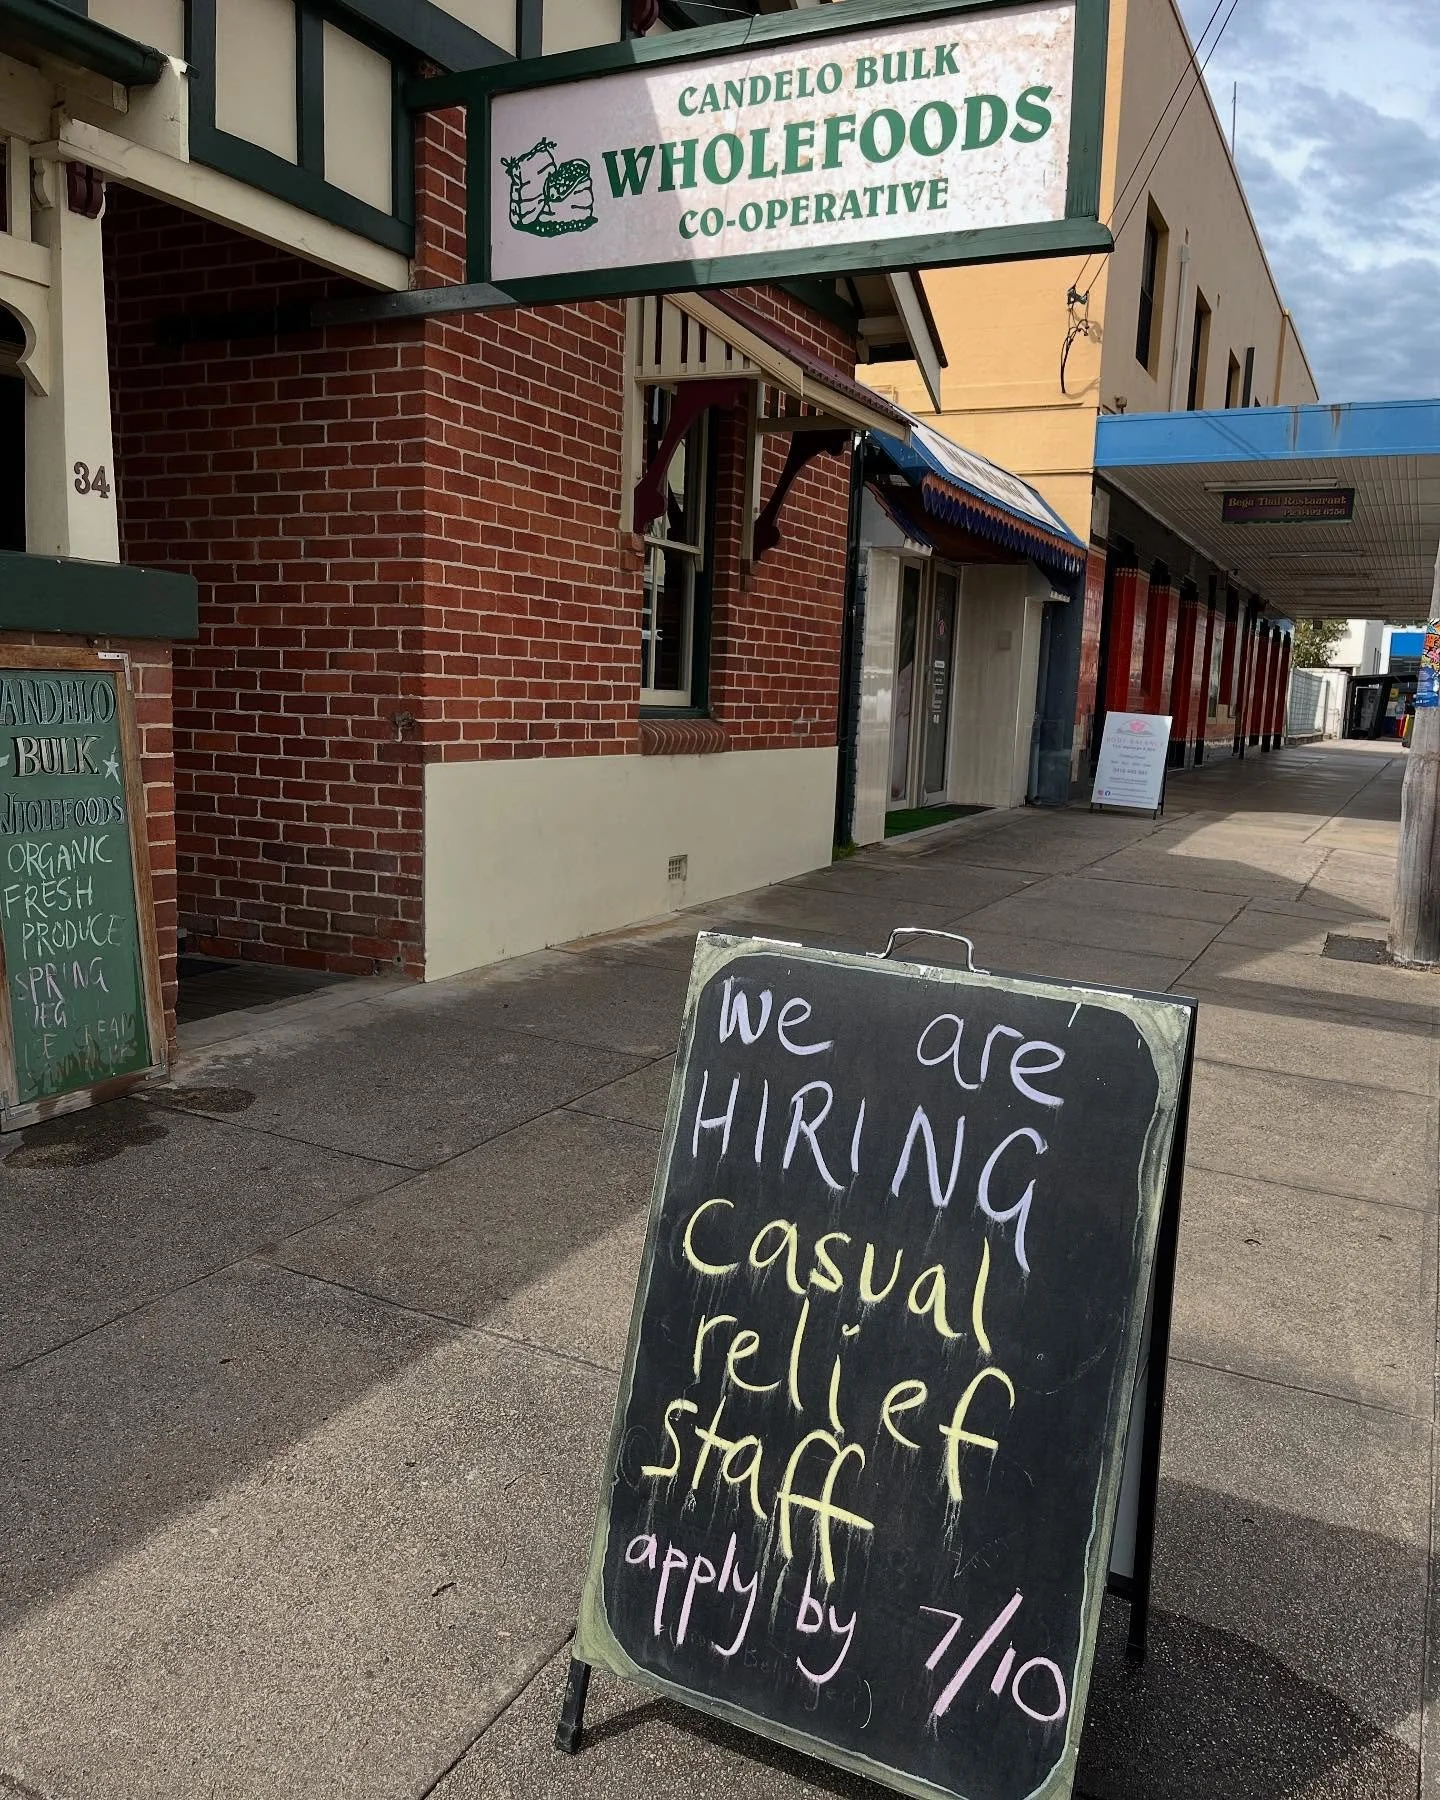 CANDELO BULK
WHOLEFOODS
CO-OPERATIVE
34
Bega Thai Restaurant
Ph: 6492 6756
ANDELO
BULK
WHOLEFOODS
ORGANIC
FRESH
PRODUCE
SPRING
VEG
BODY BALANCE
We are
HIRING
casual
relief
staff
apply by 7/10